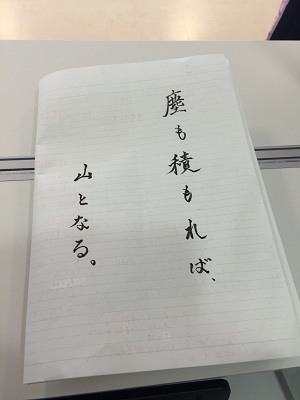 塵も積もれば、
山となる。